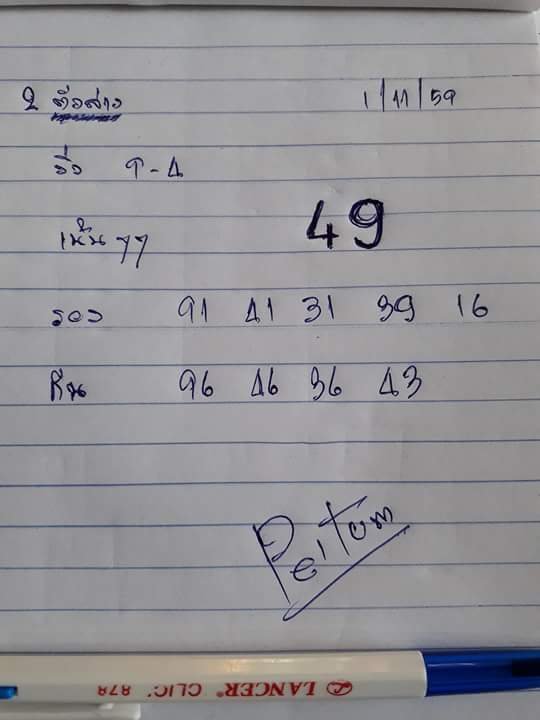 2 ตัวล่าง 1/11/59
วิ่ง 9-4
เน้น 77 49
รอง 91 41 31 39 16
กัน 96 46 36 43
LANCER CLIC' 878